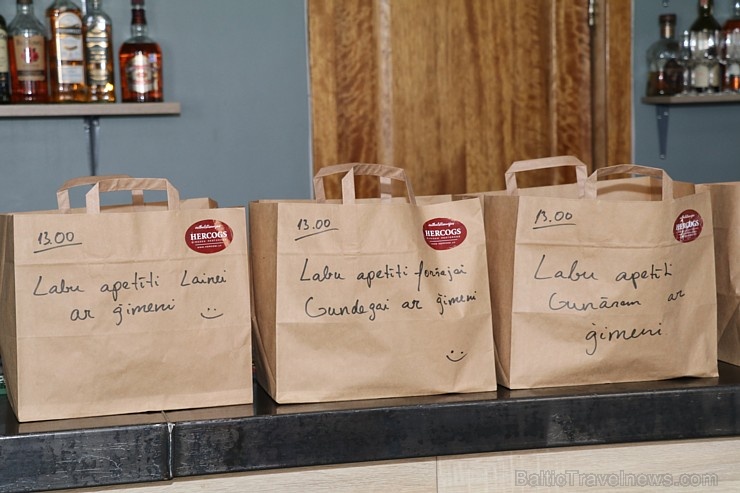 13.00
HERCOGS
Labu apetīti Lainei
ar ģimeni
13.00
HERCOGS
Labu apetīti
Gundegai ar ģimeni
13.00
HERCOGS
Labu apetīti
Gunāram ar
ģimeni
BalticTravelnews.com